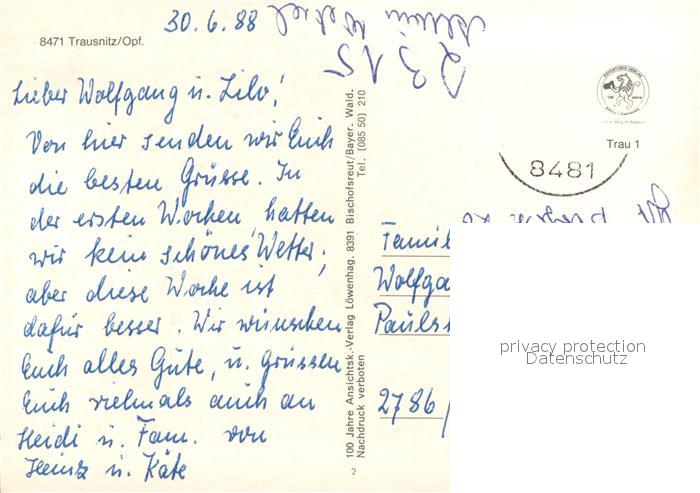 30.6.88
8471 Trausnitz/Opf.
Lieber Wolfgang u. Lilo!
Von hier senden wir Euch
die besten Grüsse. In
der ersten Wochen, hatten
wir kein schönes Wetter;
aber diese Woche ist
dafür besser. Wir wünschen
Euch alles Gute, u. Grüssen
Euch vielmals auch an
Heidi u. Fam. von
Heinz u. Käte
100 Jahre Ansichtsk.-Verlag Löwenhag, 8391 Bischofsreut/Bayer. Wald,
Nachdruck verboten
Tel. (085 50) 210
2
2315
Trau 1
8481
Famil
Wolfga
Pauls
2786/
privacy protection
Datenschutz